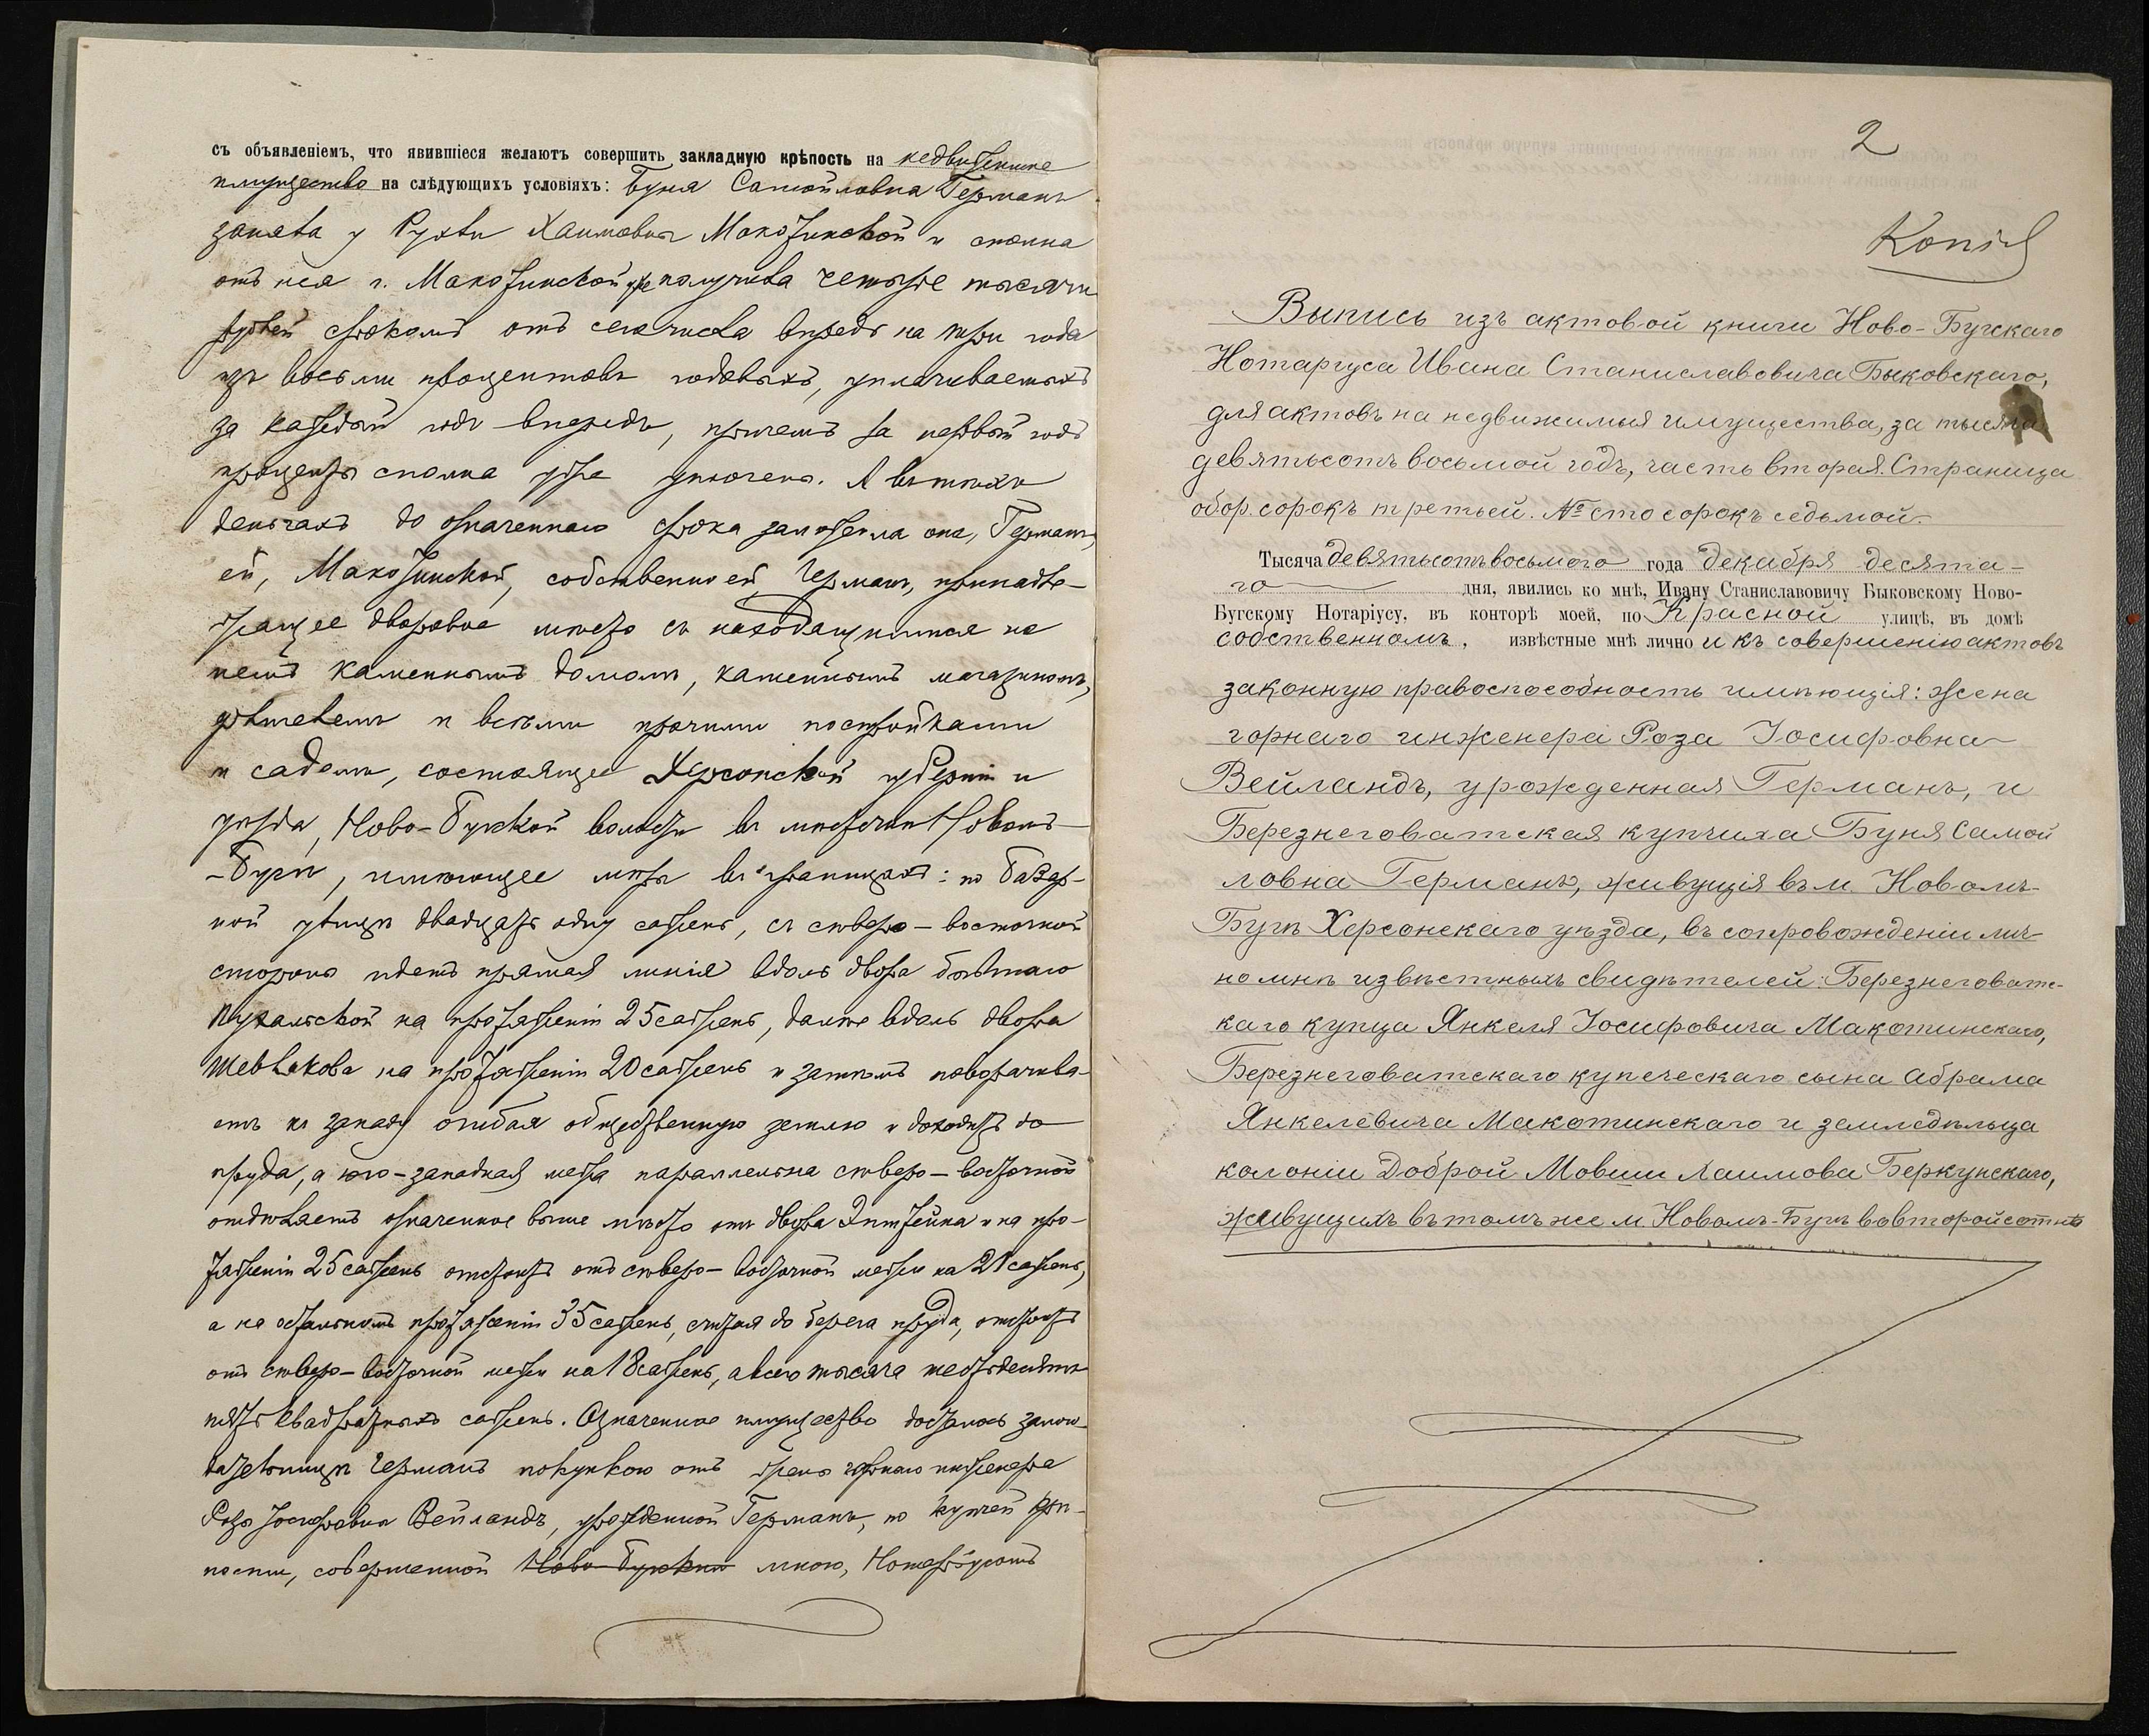 съ объявленіемъ, что явившіеся желаютъ совершить закладную крѣпость на недвижимое
имущество на слѣдующихъ условіяхъ: Буня Самойловна Германъ
заняла у Рухли Хаимовны Макотинской и сполна
отъ нея г. Макотинской уже получила четыре тысячи
рублей срокомъ отъ сего числа впредь на три года
изъ восьми процентовъ годовыхъ, уплачиваемыхъ
за каждый годъ впередъ, причемъ за первый годъ
проценты сполна уже уплочены. А въ тѣхъ
деньгахъ до означеннаго срока заложила она, Германъ,
ей, Макотинской, собственное ей, Германъ, принадле-
жащее дворовое мѣсто съ находящимися на
немъ каменнымъ домомъ, каменнымъ магазиномъ,
флигелемъ и всѣми прочими постройками
и садомъ, состоящее Херсонской губерніи и
уѣзда, Ново-Бугской волости въ мѣстечкѣ Новомъ-
-Бугѣ, имѣющее мѣры въ границахъ: по Базар-
ной улицѣ двадцать одну сажень, съ сѣверо-восточной
стороны идетъ прямая линія вдоль двора бывшаго
Пухальской на протяженіи 25 сажень, далѣе вдоль двора
Шевлякова на протяженіи 20 сажень и затѣмъ поворачива-
етъ къ западу огибая общественную землю и доходитъ до
пруда, а юго-западная межа параллельна сѣверо-восточной
отдѣляетъ означенное выше мѣсто отъ двора Эпштейна и на про-
тяженіи 25 сажень отстоитъ отъ сѣверо-восточной межи на 21 сажень,
а на остальномъ протяженіи 35 сажень, считая до берега пруда, отстоитъ
отъ сѣверо-восточной межи на 18 сажень, а всего тысяча шестьдесятъ
пять квадратныхъ сажень. Означенное имущество досталось залого-
дательницѣ Германъ покупкою отъ жены горнаго инженера
Розы Іосифовны Вейландъ, урожденной Германъ, по купчей крѣ-
пости, совершенной Ново-Бугскимъ мною, Нотаріусомъ
2
Копія
Выпись изъ актовой книги Ново-Бугскаго
Нотаріуса Ивана Станиславовича Быковскаго,
для актовъ на недвижимыя имущества, за тысяча
девятьсотъ восьмой годъ, часть вторая. Страница
обор. сорокъ третьей. № сто сорокъ седьмой.
Тысяча девятьсотъ восьмого года декабря десята-
го дня, явились ко мнѣ, Ивану Станиславовичу Быковскому Ново-
Бугскому Нотаріусу, въ конторѣ моей, по Красной улицѣ, въ домѣ
собственномъ, извѣстные мнѣ лично и къ совершенію актовъ
законную правоспособность имѣющія: жена
горнаго инженера Роза Іосифовна
Вейландъ, урожденная Германъ, и
Березнеговатская купчиха Буня Самой
ловна Германъ, живущія въ м. Новомъ-
Бугѣ Херсонскаго уѣзда, въ сопровожденіи лич-
но мнѣ извѣстныхъ свидѣтелей: Березнеговатс-
каго купца Янкеля Іосифовича Макотинскаго,
Березнеговатскаго купеческаго сына Абрама
Янкелевича Макотинскаго и земледѣльца
колоніи Доброй Мовши Хаимова Беркунскаго,
живущихъ въ томъ же м. Новомъ-Бугѣ во второй сотнѣ